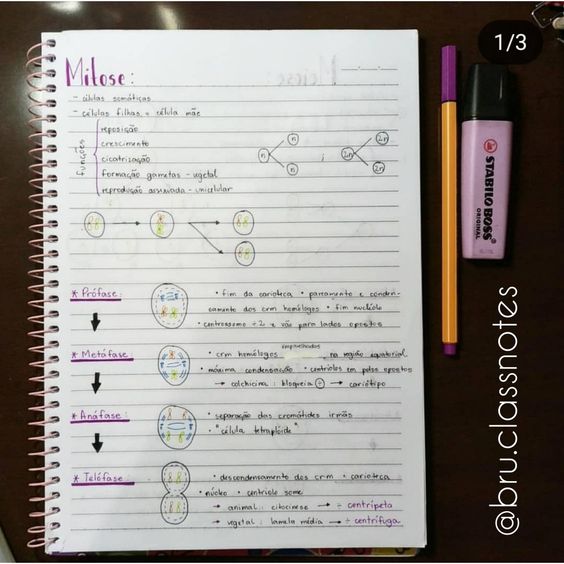 1/3
Mitose:
- células somáticas
- células filhas = célula mãe
funções
reposição
crescimento
cicatrização
formação gametas - vegetal
reprodução assexuada - unicelular
n
n
n
;
2n
2n
2n
* Prófase:
• fim da carioteca • pareamento e conden-
samento dos crm homólogos • fim nucléolo
• centrossomo ÷2 e vão para lados opostos
* Metáfase:
• crm homólogos emparelhados na região equatorial
• máxima condensação • centríolos em polos opostos
→ colchicina: bloqueia ÷ → cariótipo
* Anáfase:
• separação das cromátides irmãs
• "célula tetraplóide"
* Telófase:
• descondensamento dos crm • carioteca
• núcleo • centríolo some
→ animal: citocinese → ÷ centrípeta
→ vegetal: lamela média → ÷ centrífuga
STABILO BOSS
ORIGINAL
@bru.classnotes